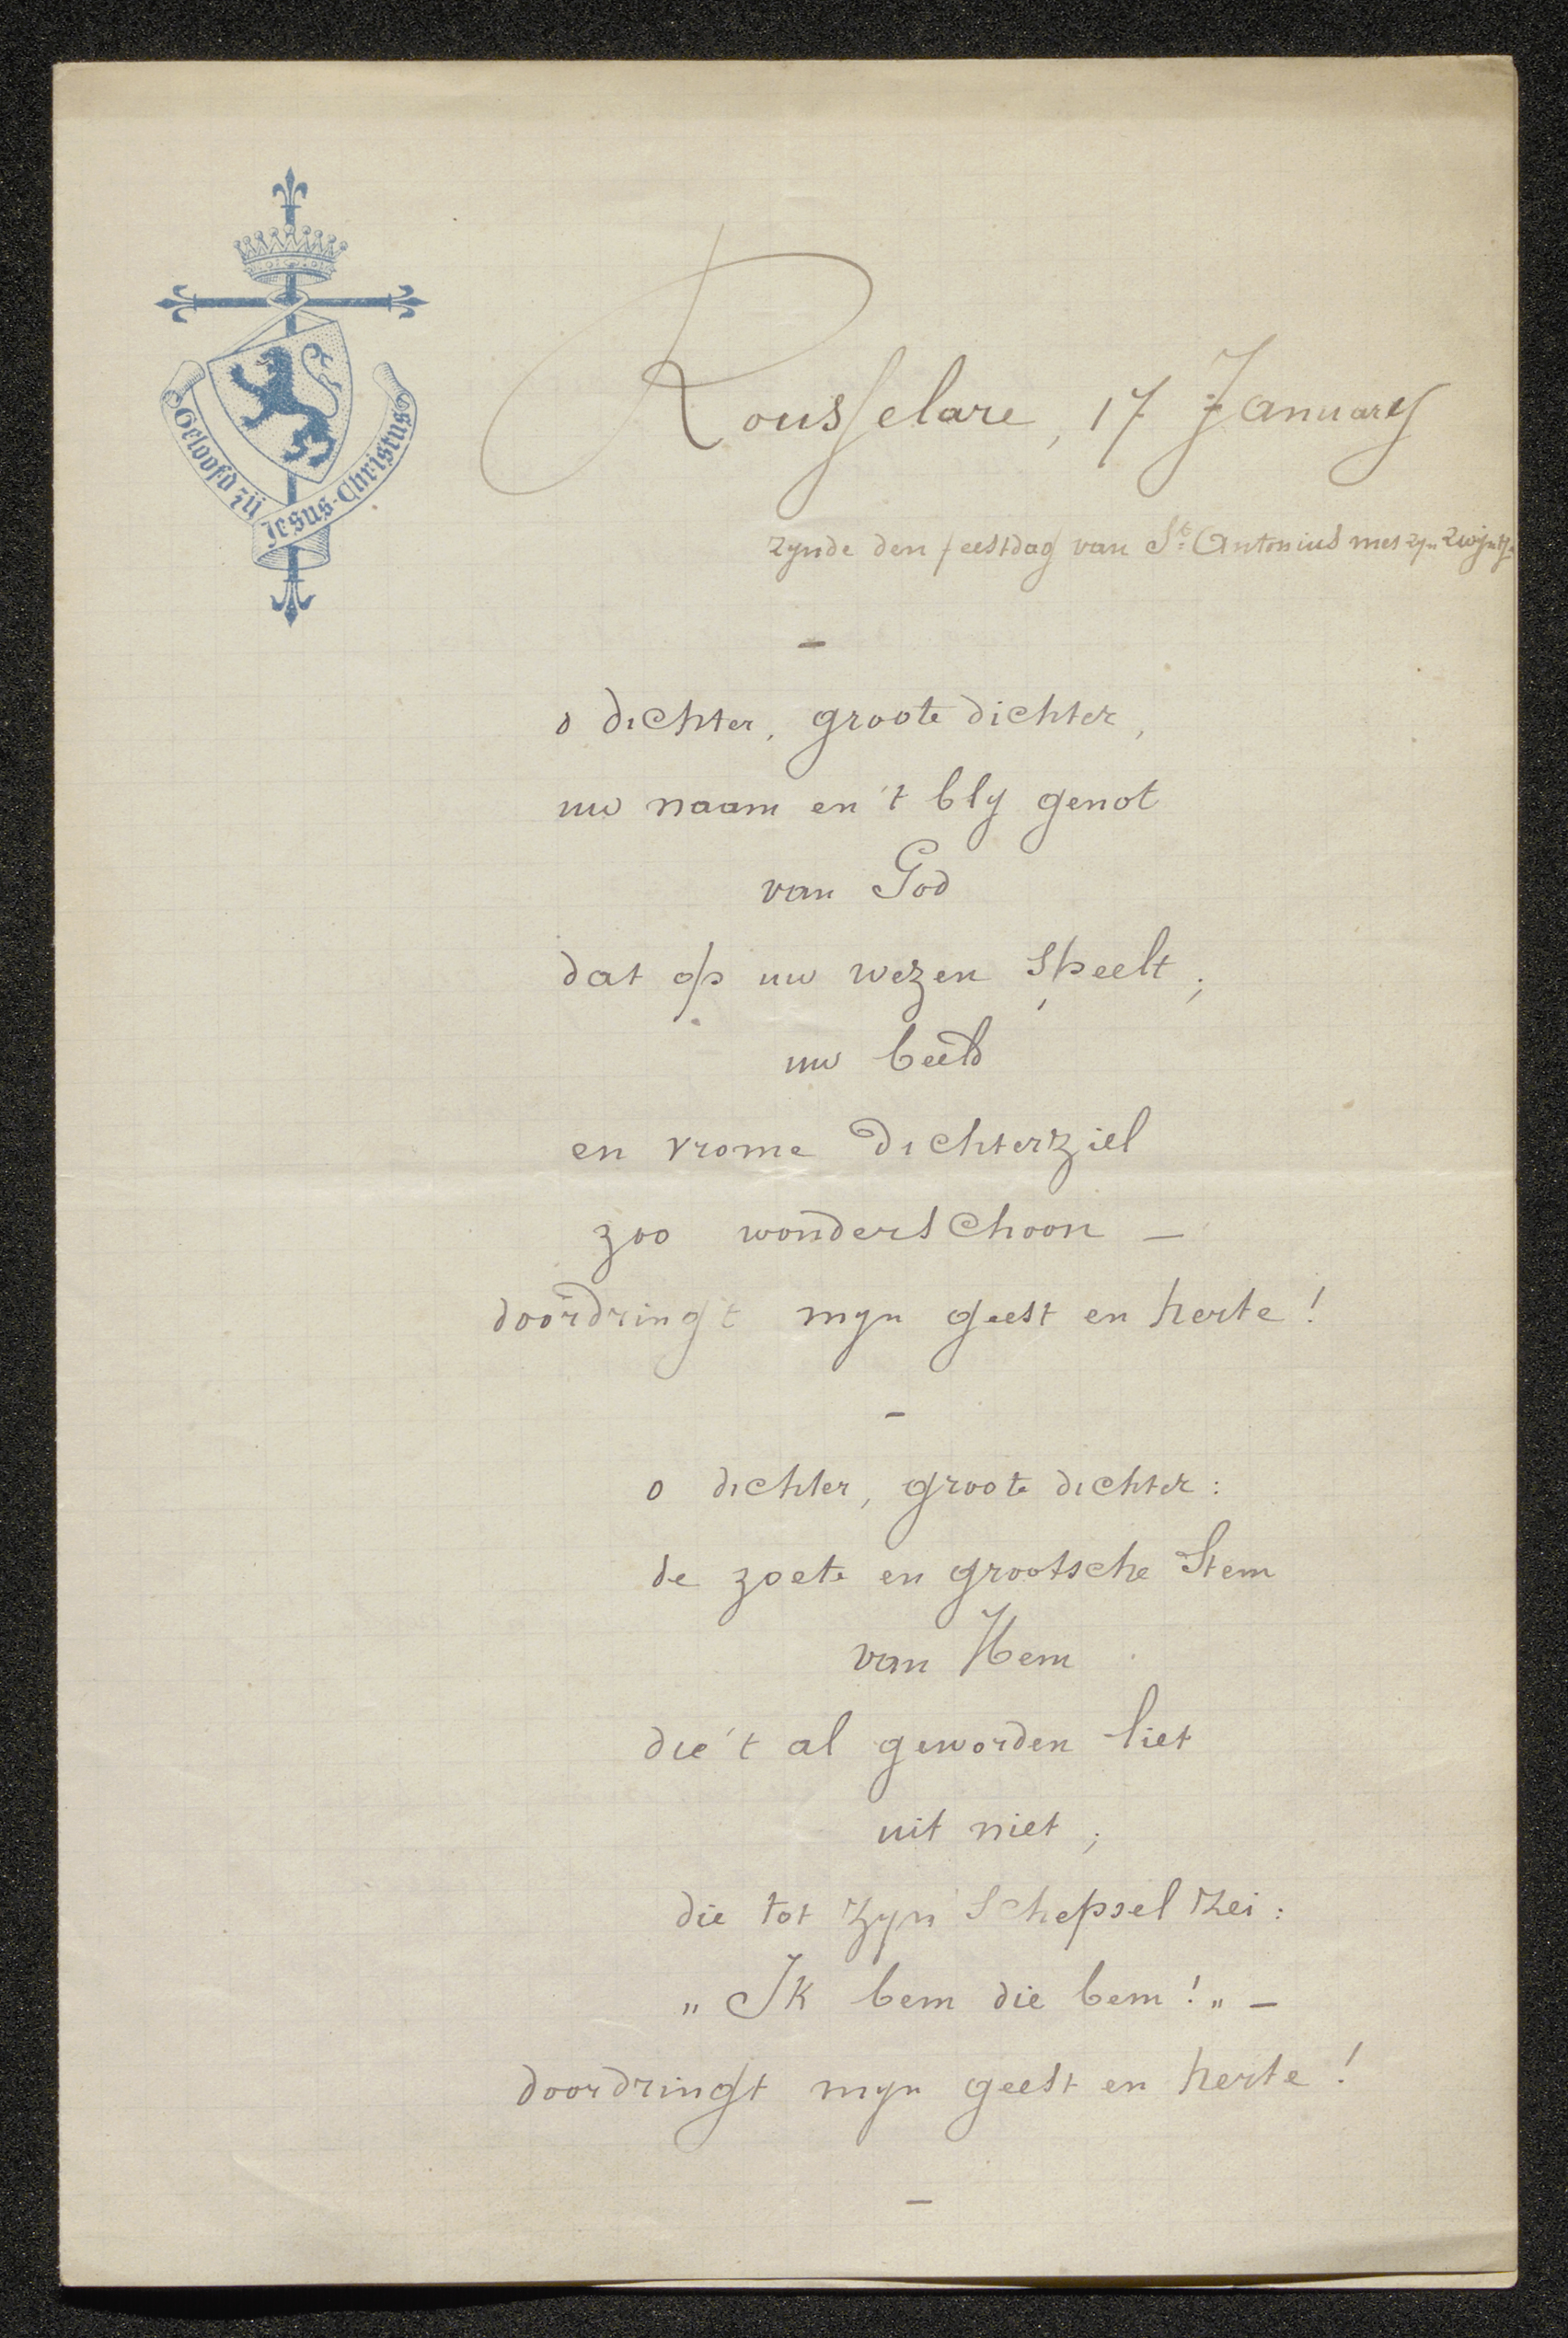 Geloofd zij Jesus-Christus
Rousselare, 17 January
zynde den feestdag van St Antonius met zyn zwijntje
—
o dichter, groote dichter,
uw naam en 't bly genot
van God
dat op uw wezen speelt;
uw beeld
en vrome dichterziel
zoo wonderschoon —
doordringt myn geest en herte!
—
o dichter, groote dichter:
de zoete en grootsche Stem
van Hem
die 't al geworden liet
uit niet;
die tot zyn schepsel zei:
„Ik bem die bem!„ —
doordringt myn geest en herte!
—